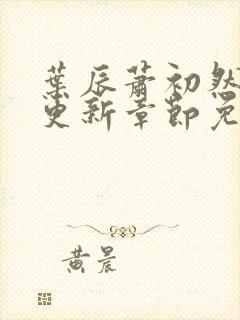 葉辰蕭初然
更新章節免
黃晨